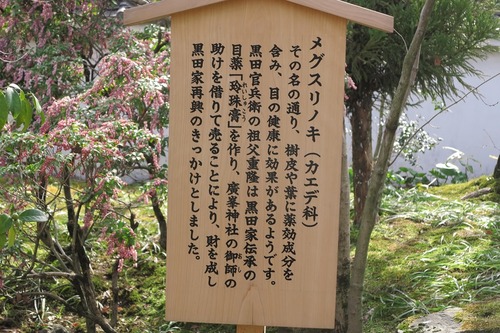 メグスリノキ（カエデ科）
その名の通り、樹皮や葉に薬効成分を
含み、目の健康に効果があるようです。
黒田官兵衛の祖父重隆は黒田家伝承の
目薬「玲珠膏」を作り、廣峯神社の御師の
助けを借りて売ることにより、財を成し
黒田家再興のきっかけとしました。